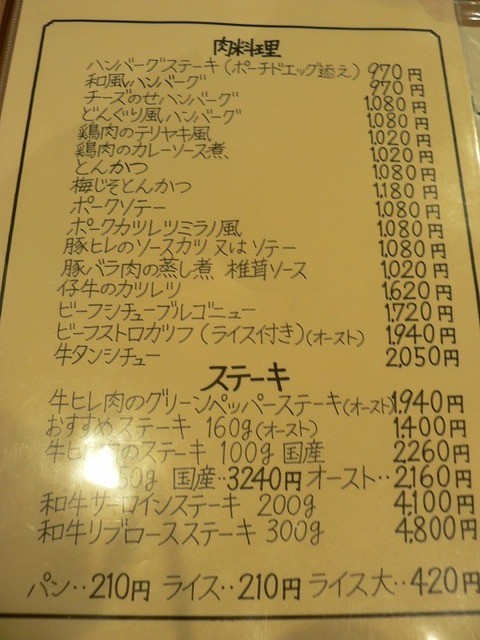 肉料理
ハンバーグステーキ(ポーチドエッグ添え) 970円
和風ハンバーグ 970円
チーズのせハンバーグ 1,080円
どんぐり風ハンバーグ 1,080円
鶏肉のテリヤキ風 1,020円
鶏肉のカレーソース煮 1,020円
とんかつ 1,080円
梅じそとんかつ 1,180円
ポークソテー 1,080円
ポークカツレツミラノ風 1,080円
豚ヒレのソースカツ又はソテー 1,080円
豚バラ肉の蒸し煮 椎茸ソース 1,020円
仔牛のカツレツ 1,620円
ビーフシチューブルゴニュー 1,720円
ビーフストロガノフ(ライス付き)(オースト) 1,940円
牛タンシチュー 2,050円
ステーキ
牛ヒレ肉のグリーンペッパーステーキ(オースト) 1,940円
おすすめステーキ 160g(オースト) 1,400円
牛ヒ のステーキ 100g 国産 2260円
50g 国産‥3240円 オースト‥2,160円
和牛サーロインステーキ 200g 4,100円
和牛リブロースステーキ 300g 4,800円
パン‥210円 ライス‥210円 ライス大‥420円